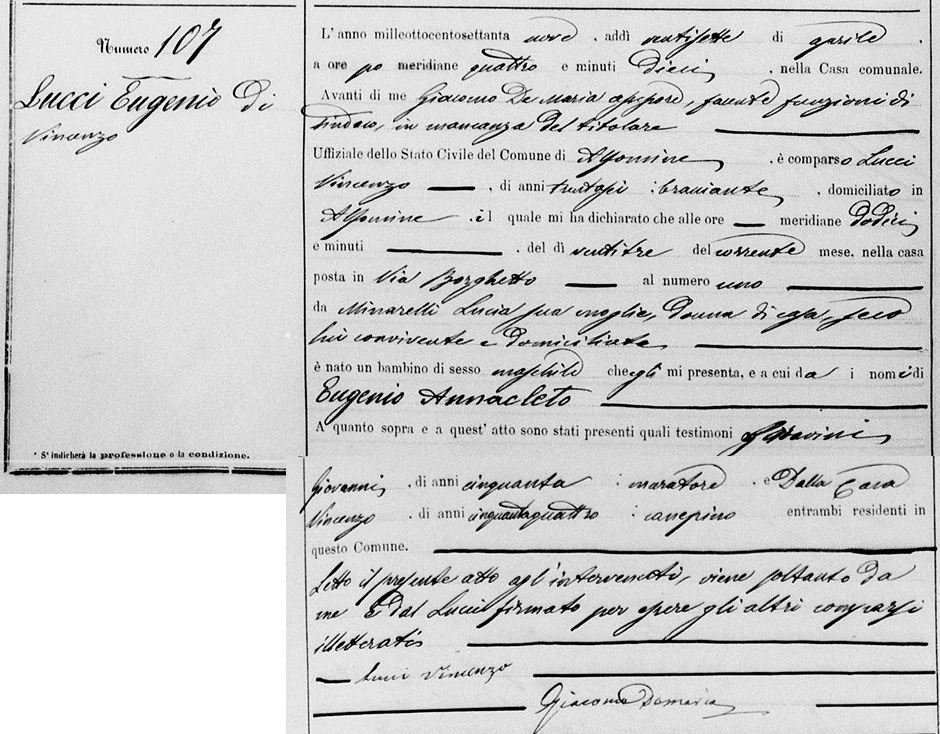 Numero 107
Lucci Eugenio di
Vincenzo
* S' indicherà la professione o la condizione.
L' anno milleottocentosettanta nove, addì ventisette di aprile,
a ore po meridiane quattro e minuti dieci, nella Casa comunale.
Avanti di me Giacomo De Maria assessore, facente funzioni di
Sindaco, in mancanza del titolare
Uffiziale dello Stato Civile del Comune di Alfonsine, è comparso Lucci
Vincenzo, di anni trentasei bracciante, domiciliato in
Alfonsine il quale mi ha dichiarato che alle ore meridiane dodici
e minuti, del dì ventitre del corrente mese, nella casa
posta in Via Borghetto al numero uno
da Minarelli Lucia sua moglie, donna di casa, seco
lui convivente e domiciliata
è nato un bambino di sesso maschile che egli mi presenta, e a cui da i nomi di
Eugenio Annacleto
A' quanto sopra e a quest' atto sono stati presenti quali testimoni
Giovanni, di anni cinquanta muratore e Dalla Casa
Vincenzo, di anni cinquantaquattro canepino entrambi residenti in
questo Comune.
Letto il presente atto agl'intervenuti, viene soltanto da
me e dal Lucci firmato per essere gli altri comparsi
illetterati
Lucci Vincenzo
Giacomo Demaria